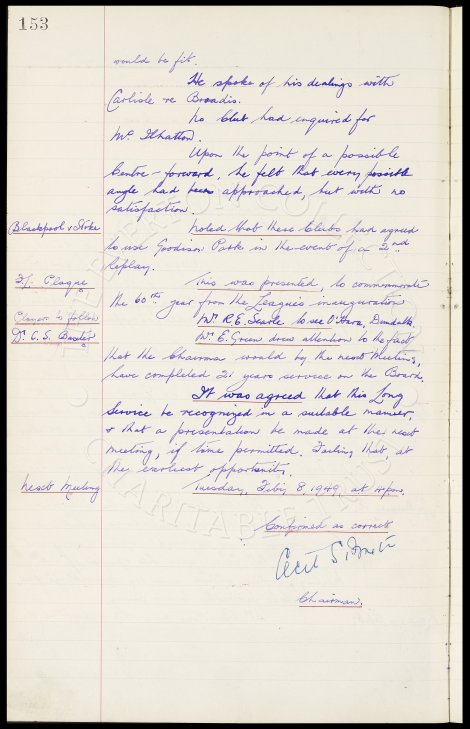 153
would be fit.
He spoke of his dealings with
Carlisle re Broadis.
No Club had inquired for
Mr
Upon the point of a possible
Centre-forward, he felt that every possible
angle had been approached, but with no
satisfaction.
Blackpool v Stoke
Noted that these Clubs had agreed
to use Goodison Park in the event of a 2nd
Replay.
F.L. Plaque
This was presented, to commemorate
the 60th year from the League's inauguration
Players to follow
Mr R.E. Searle to see O'Hara, Dundalk.
Dr. C.S. Baxter
Mr. E. Green drew attention to the fact
that the Chairman would by the next Meeting,
have completed 21 years service on the Board.
It was agreed that this Long
Service be recognized in a suitable manner,
& that a presentation be made at the next
meeting, if time permitted. Failing that, at
the earliest opportunity.
Next Meeting
Tuesday, Feby 8, 1949, at 4 pm.
Confirmed as correct
Cecil S.
Chairman.
THE EVERTON
CHARITABLE TRUST